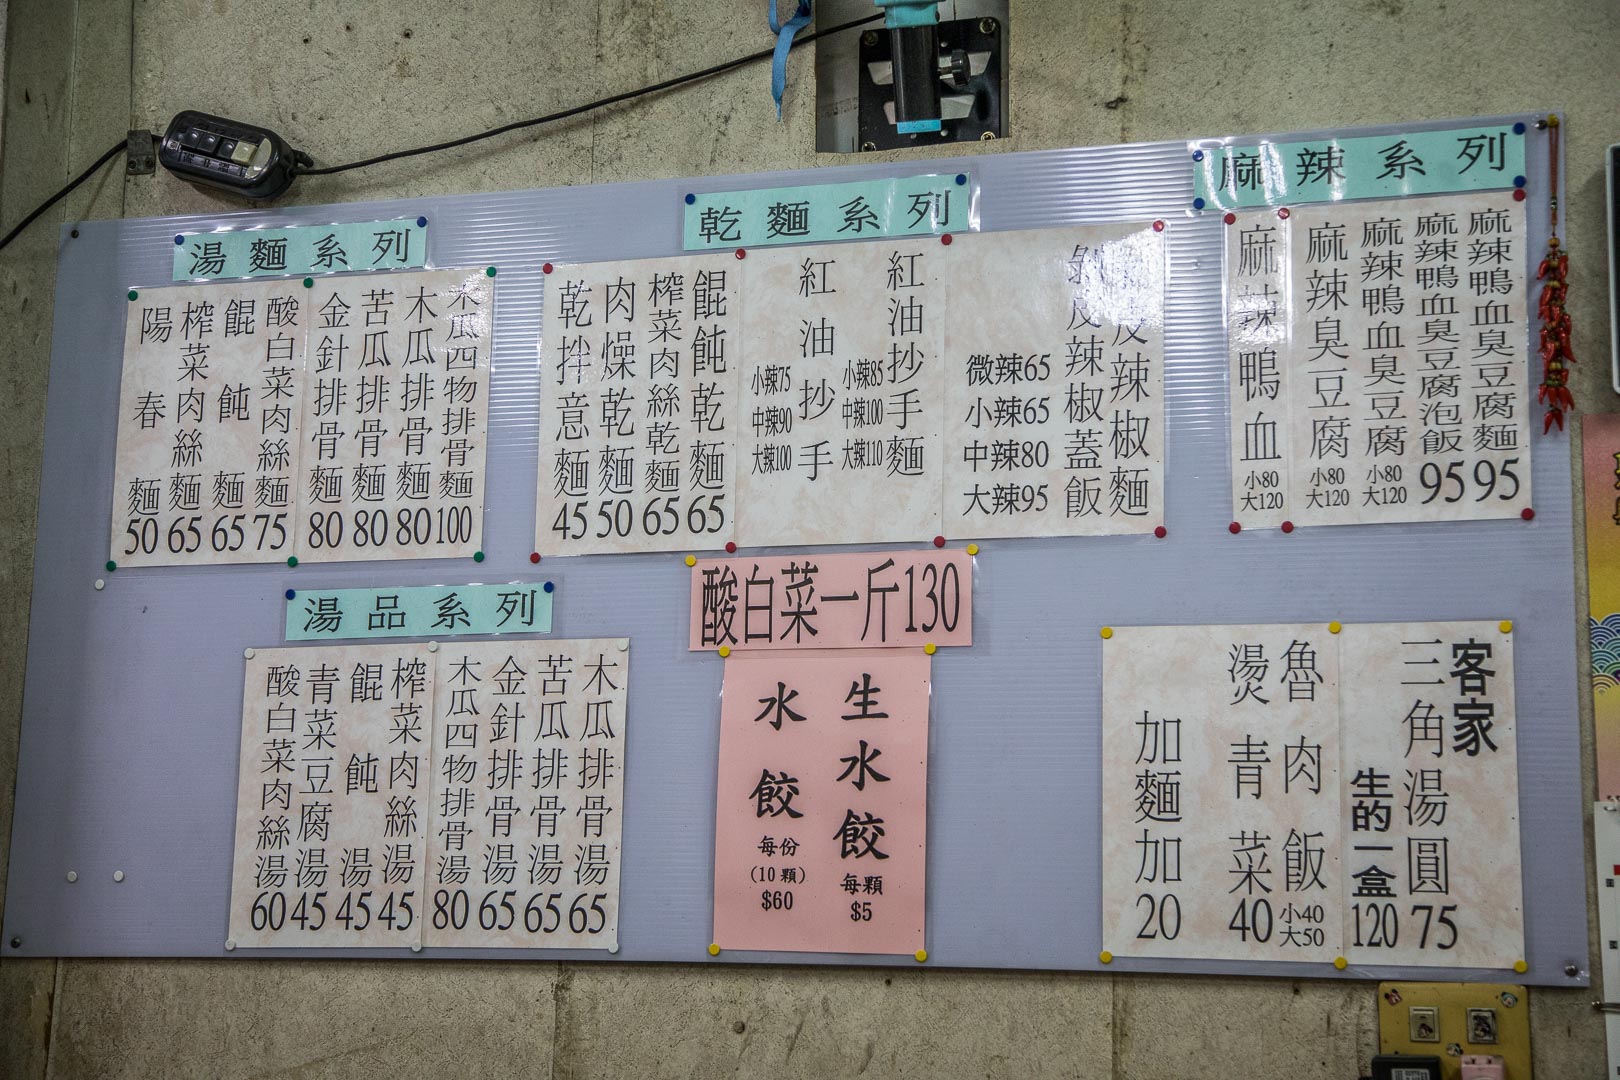 湯麵系列
木瓜四物排骨麵100
木瓜排骨麵80
苦瓜排骨麵80
金針排骨麵80
酸白菜肉絲麵75
餛飩麵65
榨菜肉絲麵65
陽春麵50
乾麵系列
剝皮辣椒麵
剝皮辣椒蓋飯
微辣65
小辣65
中辣80
大辣95
紅油抄手麵
小辣85
中辣100
大辣110
紅油抄手
小辣75
中辣90
大辣100
餛飩乾麵65
榨菜肉絲乾麵65
肉燥乾麵50
乾拌意麵45
麻辣系列
麻辣鴨血臭豆腐麵95
麻辣鴨血臭豆腐泡飯95
麻辣鴨血臭豆腐
小80
大120
麻辣臭豆腐
小80
大120
麻辣鴨血
小80
大120
湯品系列
木瓜排骨湯65
苦瓜排骨湯65
金針排骨湯65
木瓜四物排骨湯80
榨菜肉絲湯45
餛飩湯45
青菜豆腐湯45
酸白菜肉絲湯60
酸白菜一斤130
生水餃
每顆
$5
水餃
每份
(10顆)
$60
客家
三角湯圓75
生的一盒120
魯肉飯
小40
大50
燙青菜40
加麵加20